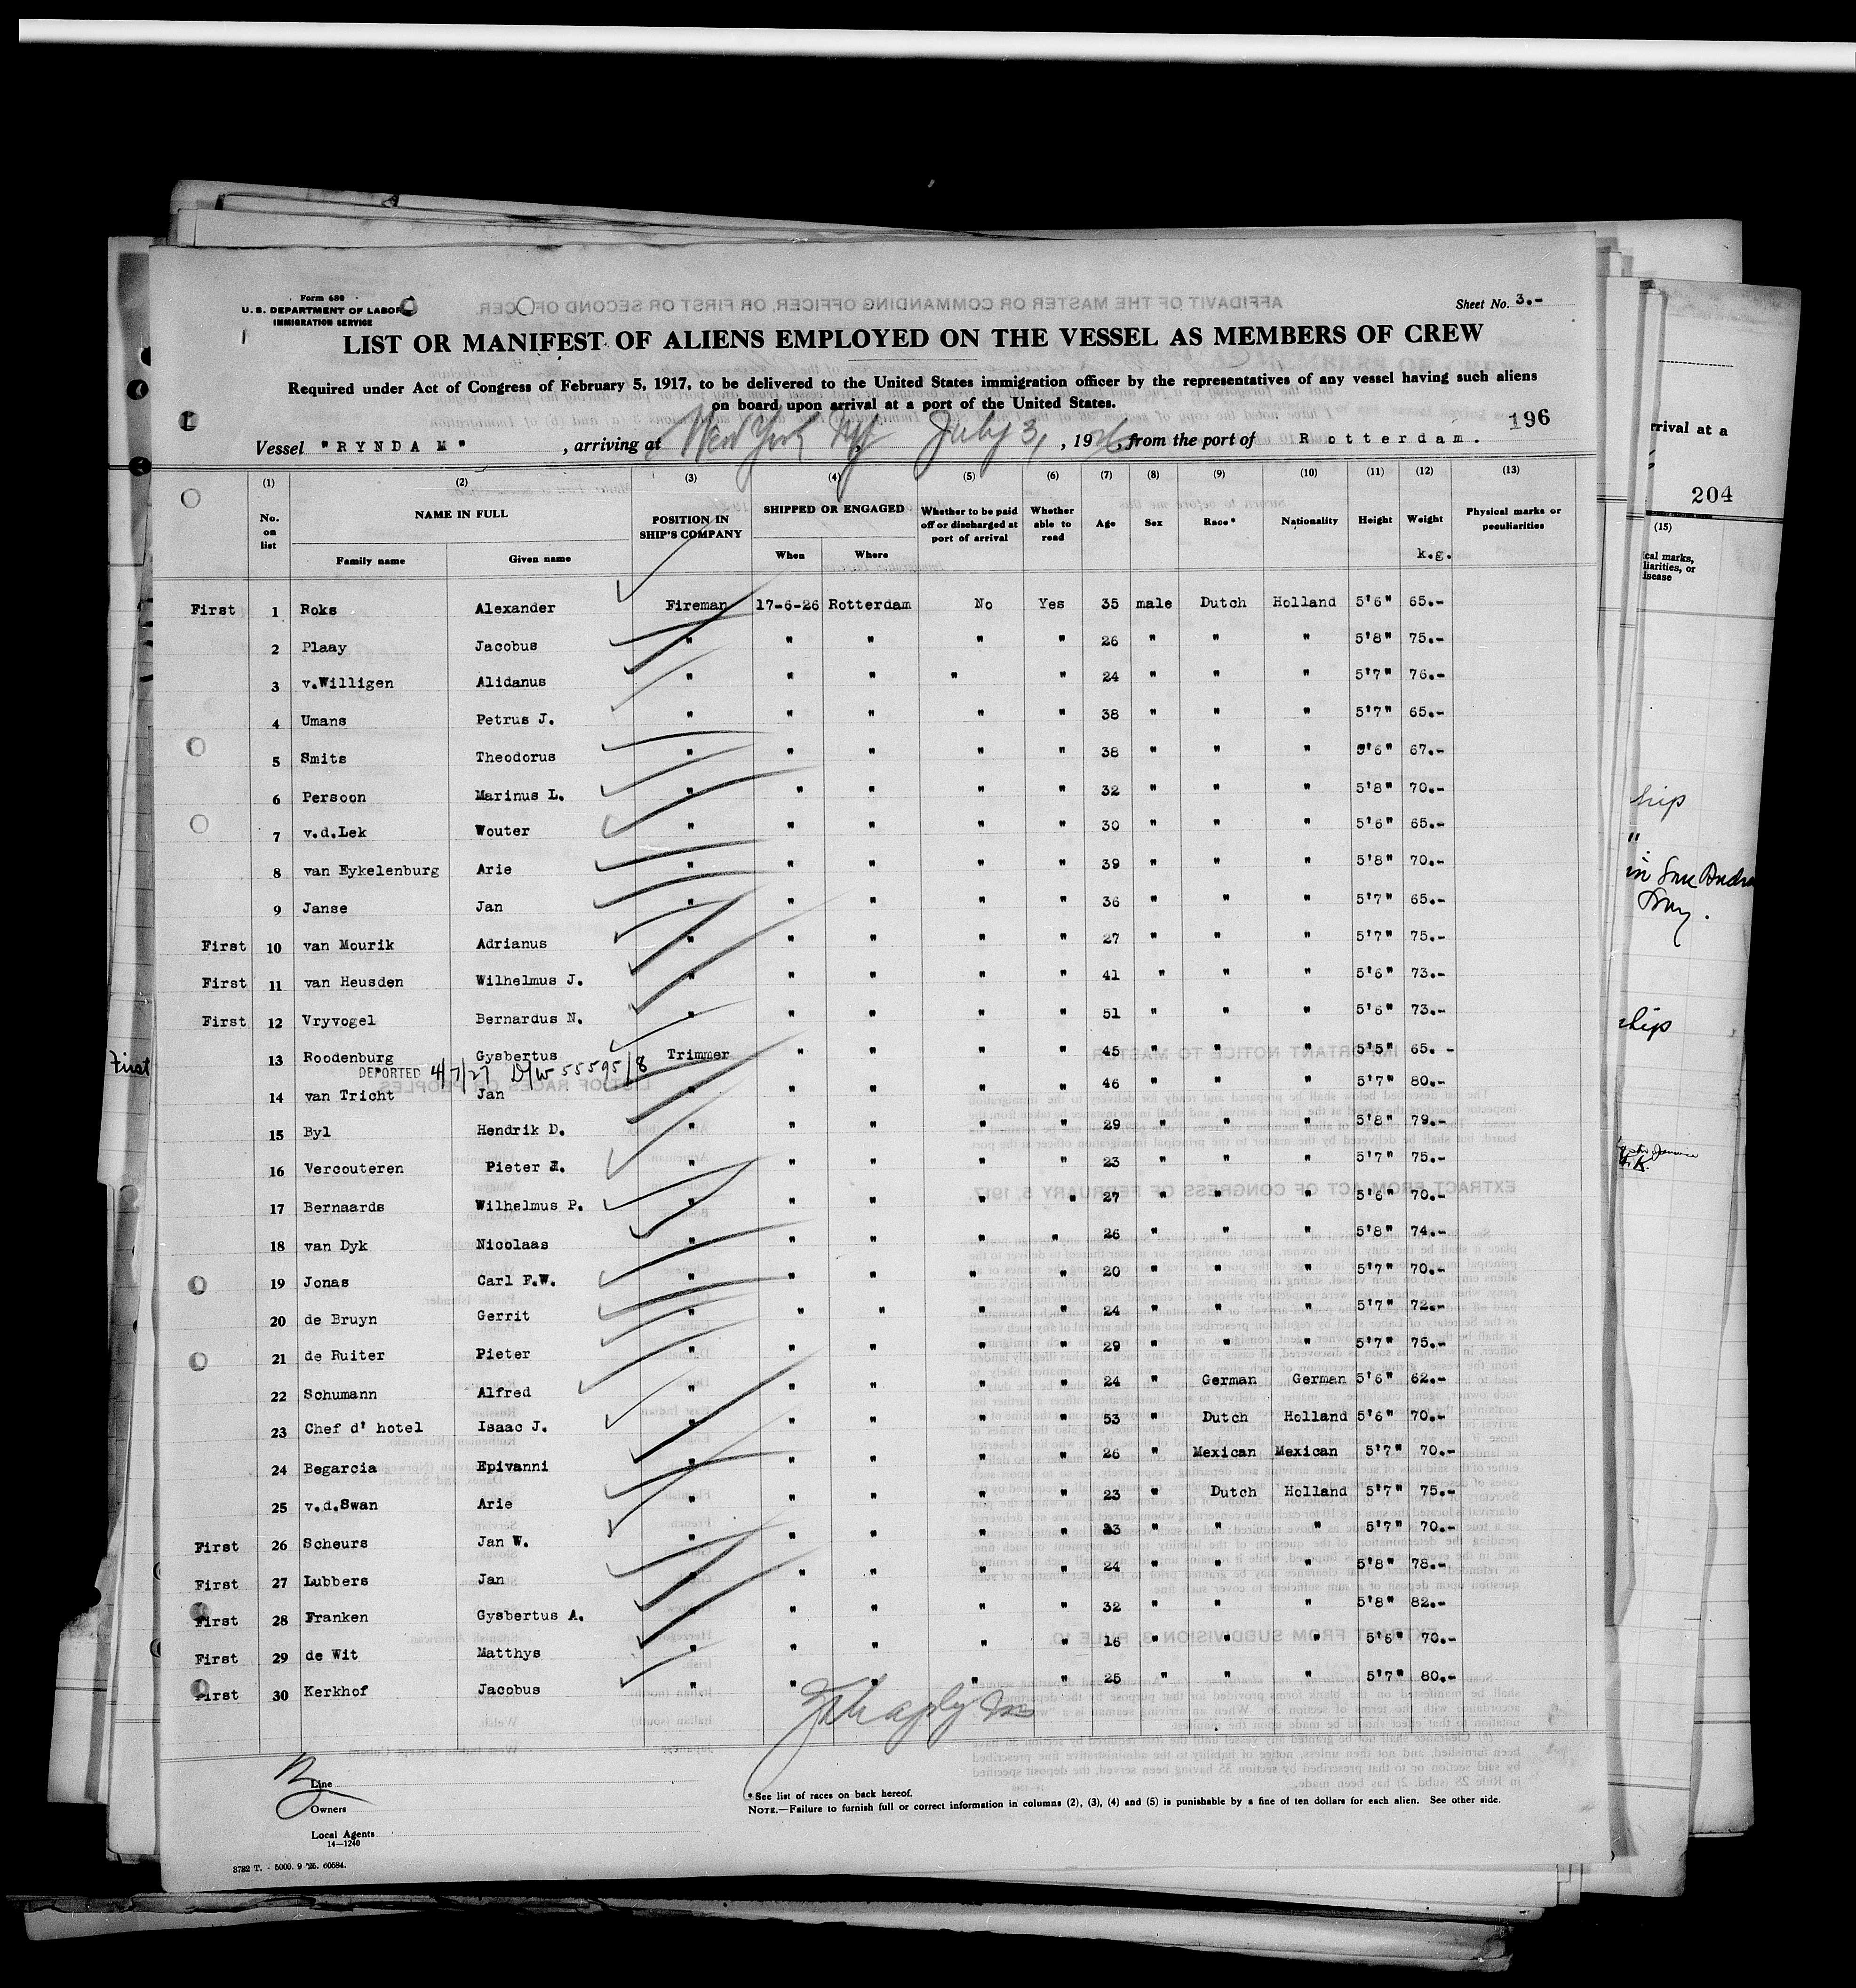 Form 680
U. S. DEPARTMENT OF LABOR
IMMIGRATION SERVICE
Sheet No. 3.-
LIST OR MANIFEST OF ALIENS EMPLOYED ON THE VESSEL AS MEMBERS OF CREW
Required under Act of Congress of February 5, 1917, to be delivered to the United States immigration officer by the representatives of any vessel having such aliens
on board upon arrival at a port of the United States.
196
Vessel "RYNDAM" , arriving at New York July 3, , 1926, from the port of Rotterdam.
(1) (2) (3) (4) (5) (6) (7) (8) (9) (10) (11) (12) (13)
No. on list NAME IN FULL Family name Given name POSITION IN SHIP'S COMPANY SHIPPED OR ENGAGED When Where Whether to be paid off or discharged at port of arrival Whether able to read Age Sex Race* Nationality Height Weight k.g. Physical marks or peculiarities
First 1 Roks Alexander Fireman 17-6-26 Rotterdam No Yes 35 male Dutch Holland 5'6" 65.-
2 Plaay Jacobus " " " " " 26 " " " 5'8" 75.-
3 v.Willigen Alidanus " " " " " 24 " " " 5'7" 76.-
4 Umans Petrus J. " " " " " 38 " " " 5'7" 65.-
5 Smits Theodorus " " " " " 38 " " " 5'6" 67.-
6 Persoon Marinus L. " " " " " 32 " " " 5'8" 70.-
7 v.d.Lek Wouter " " " " " 30 " " " 5'6" 65.-
8 van Eykelenburg Arie " " " " " 39 " " " 5'8" 70.-
9 Janse Jan " " " " " 36 " " " 5'7" 65.-
First 10 van Mourik Adrianus " " " " " 27 " " " 5'7" 75.-
First 11 van Heusden Wilhelmus J. " " " " " 41 " " " 5'6" 73.-
First 12 Vryvogel Bernardus N. " " " " " 51 " " " 5'6" 73.-
First 13 Roodenburg Gysbertus Trimmer " " " " 45 " " " 5'5" 65. -
DEPORTED 4/7/27 D/W 55595/8
14 van Tricht Jan " " " " " 46 " " " 5'7" 80.-
15 Byl Hendrik D. " " " " " 29 " " " 5'8" 79.-
16 Vercouteren Pieter " " " " " 23 " " " 5'7" 75.-
17 Bernaards Wilhelmus P. " " " " " 27 " " " 5'6" 70.-
18 van Dyk Nicolaas " " " " " 26 " " " 5'8" 74.-
19 Jonas Carl F.W. " " " " " 20 " " " 5'7" 70.-
20 de Bruyn Gerrit " " " " " 24 " " " 5'7" 72.-
21 de Ruiter Pieter " " " " " 29 " " " 5'7" 75.-
22 Schumann Alfred " " " " " 24 " German German 5'6" 62.-
23 Chef d' hotel Isaac J. " " " " " 53 " Dutch Holland 5'6" 70.-
24 Begarcia Epivanni " " " " " 26 " Mexican Mexican 5'7" 70.-
25 v.d.Swan Arie " " " " " 23 " Dutch Holland 5'7" 75.-
First 26 Scheurs Jan W. " " " " " 23 " " " 5'7" 70.-
First 27 Lubbers Jan " " " " " 24 " " " 5'8" 78.-
First 28 Franken Gysbertus A. " " " " " 32 " " " 5'8" 82.-
First 29 de Wit Matthys " " " " " 16 " " " 5'5" 70.-
First 30 Kerkhof Jacobus " " " " " 25 " " " 5'7" 80.-
Line
Owners
Local Agents
14—1240
* See list of races on back hereof.
NOTE.—Failure to furnish full or correct information in columns (2), (3), (4) and (5) is punishable by a fine of ten dollars for each alien. See other side.
3782 T. - 5000. 9 '25. 60584.
rrival at a
204
(15)
cal marks,
liarities, or
isease
ship
"
ship